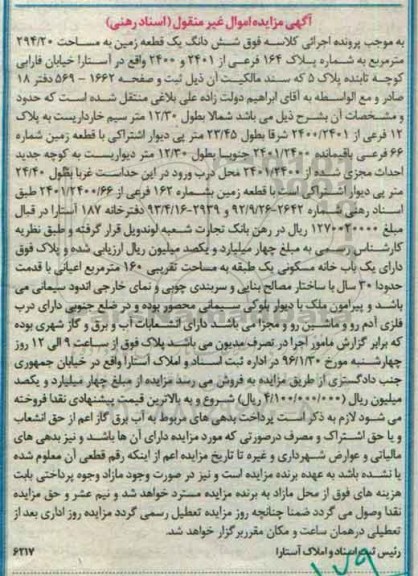 آگهی مزایده اموال غیر منقول (اسناد رهنی)
به موجب پرونده اجرائی کلاسه فوق شش دانگ یک قطعه زمین به مساحت ۲۹۴/۲۰
مترمربع به شماره پلاک ۱۶۴ فرعی از ۲۴۰۱ و ۲۴۰۰ واقع در آستارا خیابان فارابی
کوچه تابنده پلاک ۵ که سند مالکیت آن ذیل ثبت و صفحه ۱۶۶۲ - ۵۶۹ دفتر ۱۸
صادر و مع الواسطه به آقای ابراهیم دولت زاده علی بلاغی منتقل شده است که حدود
و مشخصات آن بشرح ذیل می باشد شمالا بطول ۱۲/۳۰ متر سیم خارداریست به پلاک
۱۲ فرعی از ۲۴۰۰/۲۴۰۱ شرقا بطول ۲۳/۴۵ متر پی دیوار اشتراکی با قطعه زمین شماره
۶۶ فرعی باقیمانده ۲۴۰۱/۲۴۰۰ جنوبا بطول ۱۲/۳۰ متر دیواریست به کوچه جدید
احداث مجزی شده از ۲۴۰۱/۲۴۰۰ محل درب ورود در این حداست غربا بطول ۲۴/۴۰
متر پی دیوار اشتراکی است با قطعه زمین بشماره ۱۶۲ فرعی از ۲۴۰۱/۲۴۰۰/۶۶ طبق
اسناد رهنی شماره ۲۶۴۲-۹۲/۹/۲۶ و ۲۹۳۹-۹۳/۴/۱۶ دفترخانه ۱۸۷ آستارا در قبال
مبلغ ۱۲۷۰۰۲۰۰۰۰ ریال در رهن بانک تجارت شعبه لوندویل قرار گرفته و طبق نظریه
کارشناس رسمی به مبلغ چهار میلیارد و یکصد میلیون ریال ارزیابی شده و پلاک فوق
دارای یک باب خانه مسکونی یک طبقه به مساحت تقریبی ۱۶۰ مترمربع اعیانی با قدمت
حدودا ۳۰ سال با ساختار مصالح بنایی و سربندی چوبی و نمای خارجی اندود سیمانی می
باشد و پیرامون ملک با دیوار بلوکی سیمانی محصور بوده و در ضلع جنوبی دارای درب
فلزی آدم رو و ماشین رو و مجزا می باشد دارای انشعابات آب و برق و گاز شهری بوده
که برابر گزارش مامور اجرا در تصرف مدیون می باشد پلاک فوق از ساعت ۹ الی ۱۲ روز
چهارشنبه مورخ ۹۶/۱/۳۰ در اداره ثبت اسناد و املاک آستارا واقع در خیابان جمهوری
جنب دادگستری از طریق مزایده به فروش می رسد مزایده از مبلغ چهار میلیارد و یکصد
میلیون ریال (۴/۱۰۰/۰۰۰/۰۰۰ ریال) شروع و به بالاترین قیمت پیشنهادی نقدا فروخته
می شود لازم به ذکر است پرداخت بدهی های مربوط به آب برق گاز اعم از حق انشعاب
و یا حق اشتراک و مصرف درصورتی که مورد مزایده دارای آن ها باشد و نیز بدهی های
مالیاتی و عوارض شهرداری و غیره تا تاریخ مزایده اعم از اینکه رقم قطعی آن معلوم شده
یا نشده باشد به عهده برنده مزایده است و نیز در صورت وجود مازاد وجوه پرداختی بابت
هزینه های فوق از محل مازاد به برنده مزایده مسترد خواهد شد و نیم عشر و حق مزایده
نقدا وصول می گردد ضمنا چنانچه روز مزایده تعطیل رسمی گردد مزایده روز اداری بعد از
تعطیلی درهمان ساعت و مکان مقرر برگزار خواهد شد.
رئیس ثبت اسناد و املاک آستارا ۶۲۱۷